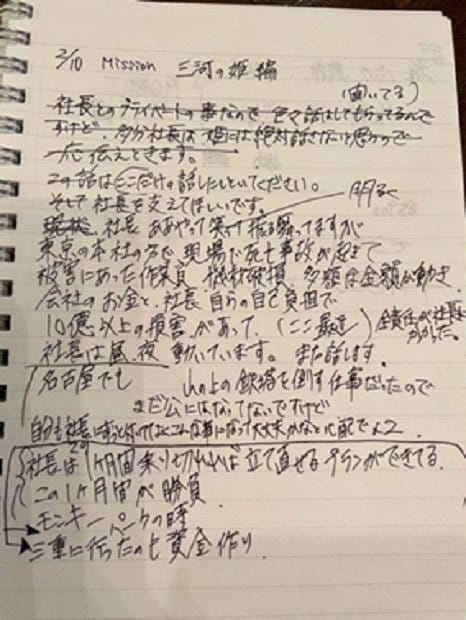 2/10 Mission 三河の姫編
(聞いてる)
社長とのプライベートの事なので、色々話はしてもらってるんで
すけど、多分社長は姫には絶対話さないと思うので
一応伝えときます。
この話はここだけの話にしといてください。
そして社長を支えてほしいです。
明るく
社長、ああやって笑って振る舞ってますが
東京の本社の方で、現場で死亡事故が起きて
被害にあった作業員、機材破損、多額な金額が動き、
会社のお金と、社長自らの自己負担で
10億以上の損害があって、(ここ最近) 全責任が社長に
かかった。
社長は昼、夜 動いています。また話します。
名古屋でも 山の上の鉄塔を倒す仕事だったので
まだ公にはなってないですけど
自分も社長に
こんな事になって大丈夫かなと心配で
社長はこの1ヶ月間乗り切れれば立て直せるプランができてる。
この1ヶ月間が勝負。
モンキーパークの時
三重に行ったのも資金作り.